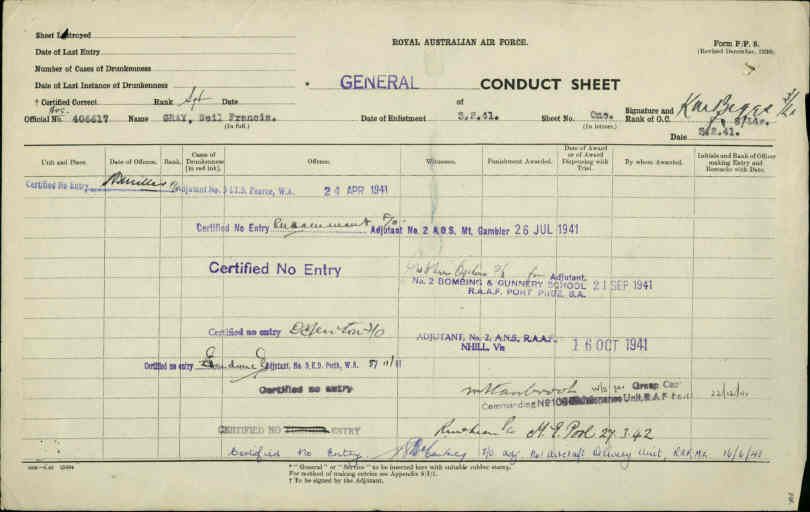 Sheet Destroyed
Date of Last Entry
Number of Cases of Drunkenness
Date of Last Instance of Drunkenness
† Certified Correct Rank Date
ROYAL AUSTRALIAN AIR FORCE.
Form P/P. 8.
(Revised December, 1938)
* GENERAL CONDUCT SHEET
Official No. 406617 Name GRAY, Neil Francis.
(In full.)
Date of Enlistment of 3.2.41. Sheet No. One.
(In letters.)
Signature and
Rank of O.C.
Date 3.2.41.
Unit and Place. Date of Offence. Rank. Cases of Drunkenness [In red ink]. Offence. Witnesses. Punishment Awarded. Date of Award or of Award Dispensing with Trial. By whom Awarded. Initials and Rank of Officer making Entry and Remarks with Date.
Certified No Entry Adjutant No. 5 I.T.S. Pearce, W.A. 24 APR 1941
Certified No Entry Adjutant No. 2 A.O.S. Mt. Gambier 26 JUL 1941
Certified No Entry for Adjutant,
No. 2 BOMBING & GUNNERY SCHOOL 21 SEP 1941
R.A.A.F. PORT PIRIE, S.A.
Certified no entry ADJUTANT, No. 2, A.N.S, R.A.A.F.
NHILL, Vic 16 OCT 1941
Certified no entry Adjutant, No. 5 E.D. Perth, W.A.
Certified no entry Group Cap 22/12/41
Commanding Maintenance Unit, R.A.F.
CERTIFIED NO ENTRY 27.3.42
Certified No Entry F/O Adj. No 1 Aircraft Delivery Unit,
* "General" or "Service" to be inserted here with suitable rubber stamp.
For method of making entries see Appendix
† To be signed by the Adjutant.